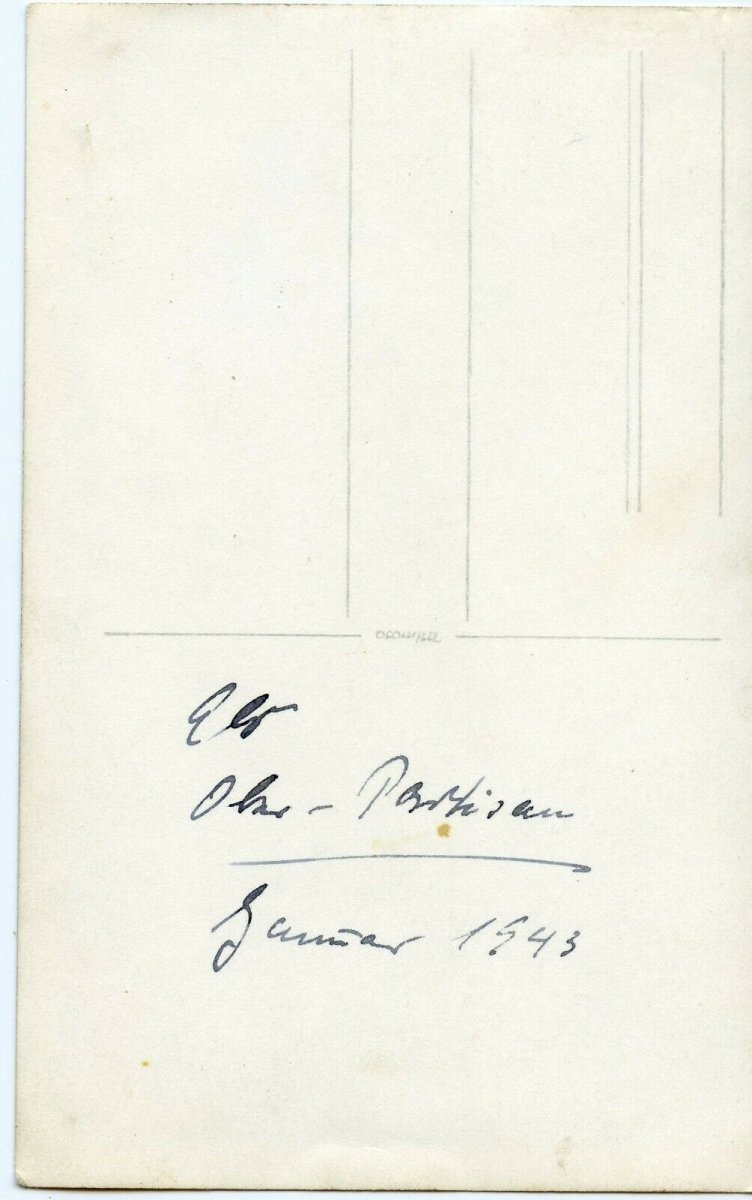 Als
Ober - Partisan
Januar 1943